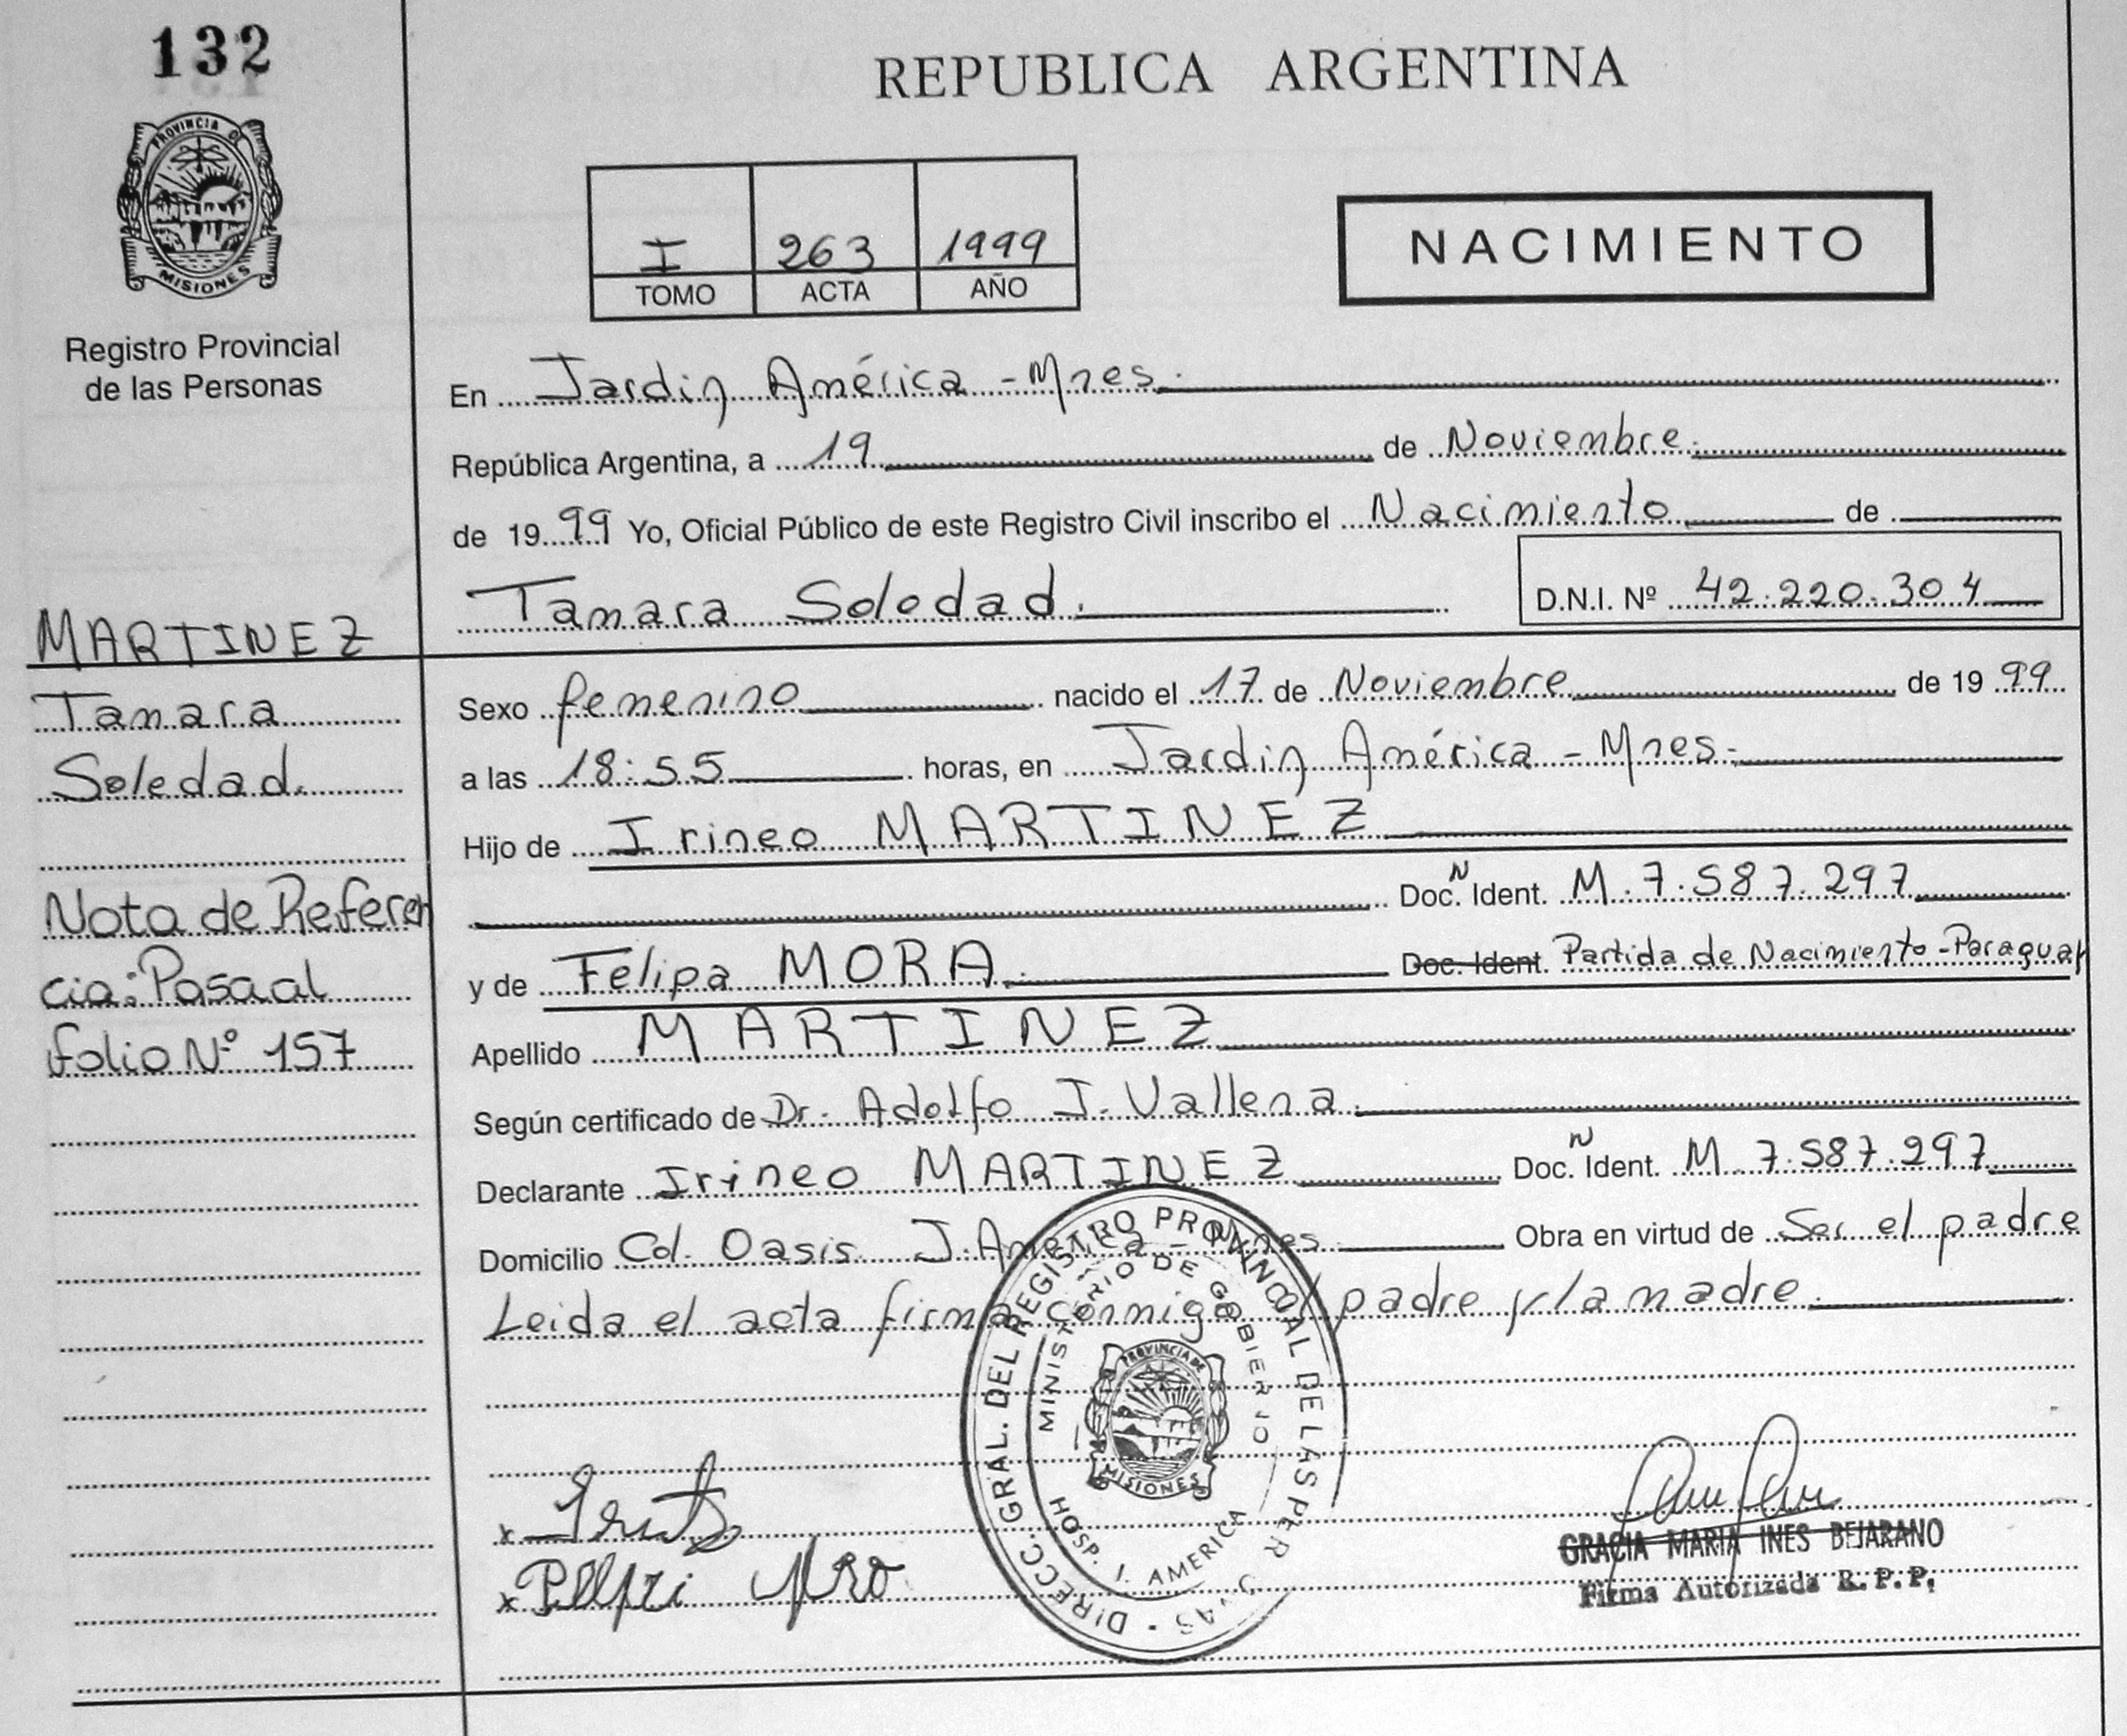 132
PROVINCIA DE
MISIONES
Registro Provincial
de las Personas
REPUBLICA ARGENTINA
I 263 1999
TOMO ACTA AÑO
NACIMIENTO
En Jardin América - Mnes.
República Argentina, a 19 de Noviembre.
de 19 99 Yo, Oficial Público de este Registro Civil inscribo el Nacimiento de
Tamara Soledad.
D.N.I. Nº 42.220.304
MARTINEZ
Tamara
Soledad.
Nota de Referen
cia: Pasa al
folio Nº 157
Sexo femenino nacido el 17 de Noviembre de 19 99
a las 18:55 horas, en Jardin América - Mnes.
Hijo de Irineo MARTINEZ
Doc. N Ident. M. 7.587.297
y de Felipa MORA. Doc. Ident. Partida de Nacimiento - Paraguay
Apellido MARTINEZ
Según certificado de Dr. Adolfo J. Vallena.
Declarante Irineo MARTINEZ Doc. N Ident. M. 7.587.297
Domicilio Col. Oasis. J. América - Mnes Obra en virtud de Ser el padre
Leida el acta firma conmigo el padre y/la madre.
DIRECC. GRAL. DEL REGISTRO PROVINCIAL DE LAS PER
MINISTERIO DE GOBIERNO
PROVINCIA DE
MISIONES
HOSP. J. AMERICA
x
x
GRACIA MARIA INES BEJARANO
Firma Autorizada R. P. P.